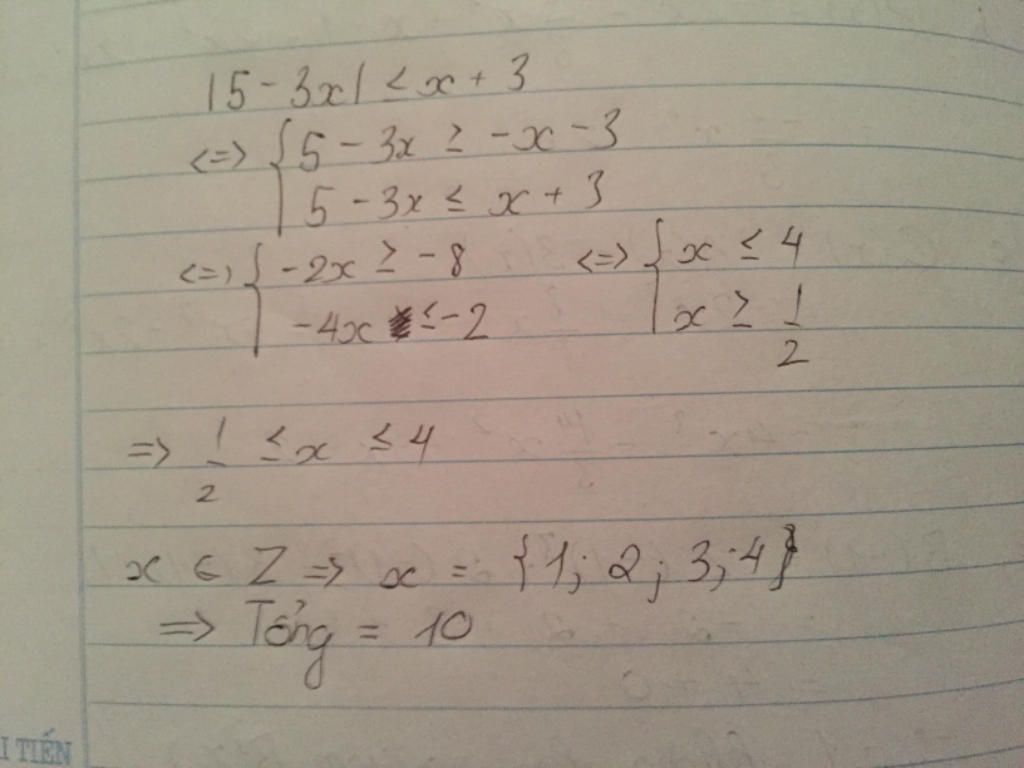 |5 - 3x| ≤ x + 3
<=> { 5 - 3x ≥ -x - 3
5 - 3x ≤ x + 3
<=> { -2x ≥ -8 <=> { x ≤ 4
-4x ≤ -2 x ≥ 1/2
=> 1/2 ≤ x ≤ 4
x ∈ Z => x = {1; 2; 3; 4}
=> Tổng = 10
I TIẾN